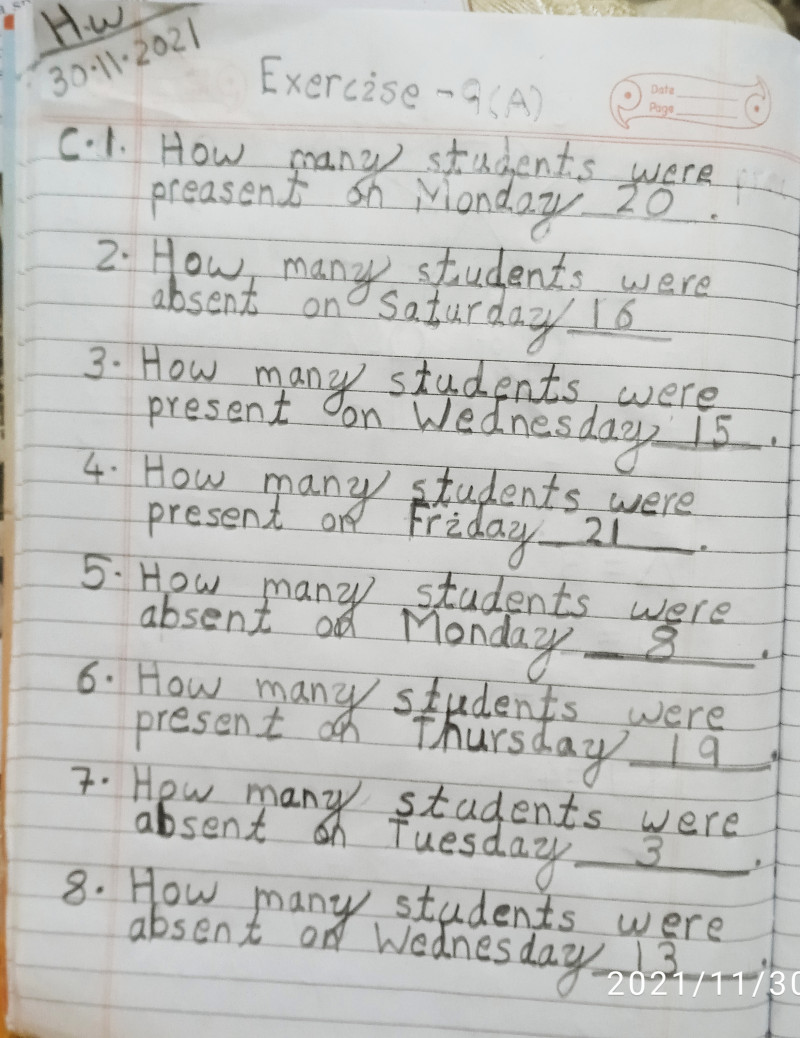 H.W
30.11.2021
Exercise - 9(A)
Date
Page
C.1. How many students were
preasent on Monday 20.
2. How many students were
absent on Saturday 16
3. How many students were
present on Wednesday 15.
4. How many students were
present on Friday 21.
5. How many students were
absent on Monday 8.
6. How many students were
present on Thursday 19.
7. How many students were
absent on Tuesday 3.
8. How many students were
absent on Wednesday 13.
2021/11/30